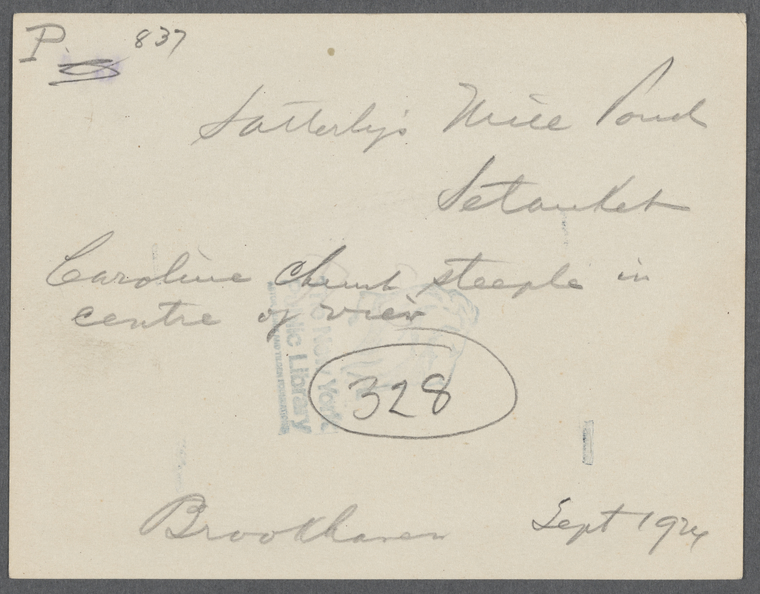 P. 837
Satterly's Mill Pond
Setauket
Caroline Church steeple in
centre of view
The New York
Public Library
328
Brookhaven Sept 1924